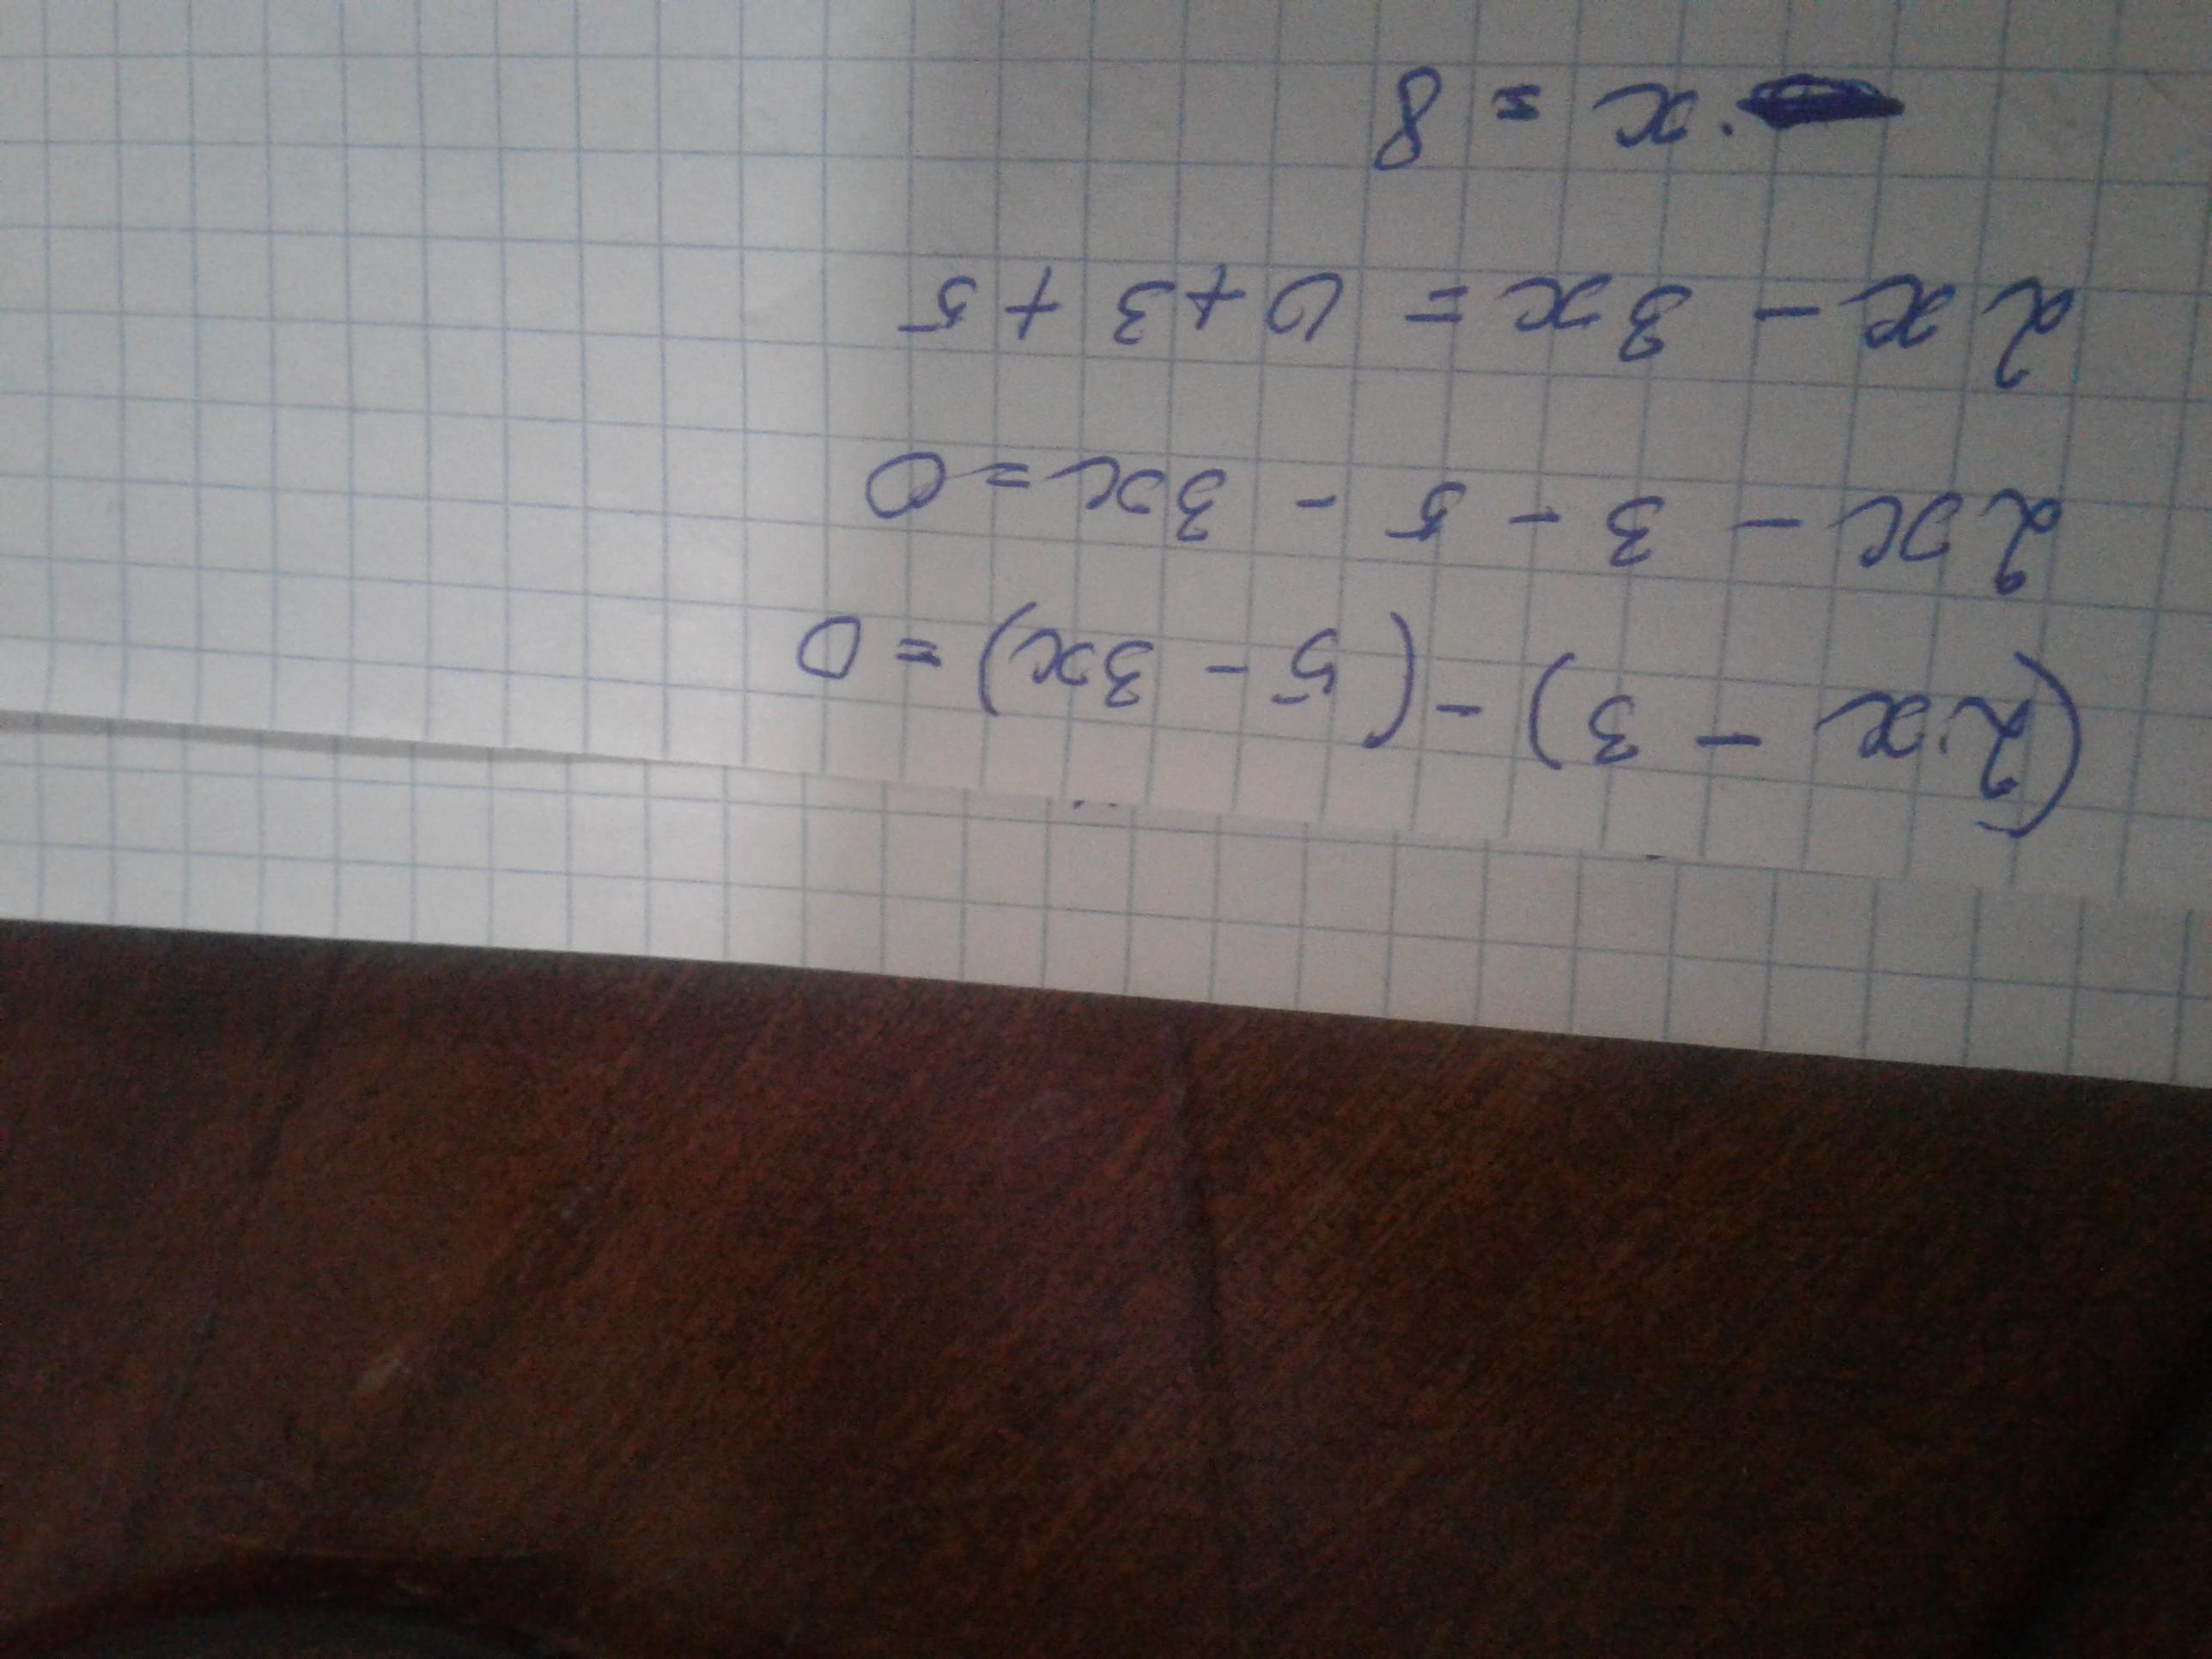 (2·x - 3) - (5 - 3x) = 0
2x - 3 - 5 - 3x = 0
2x - 3x = 0 + 3 + 5
·x = 8